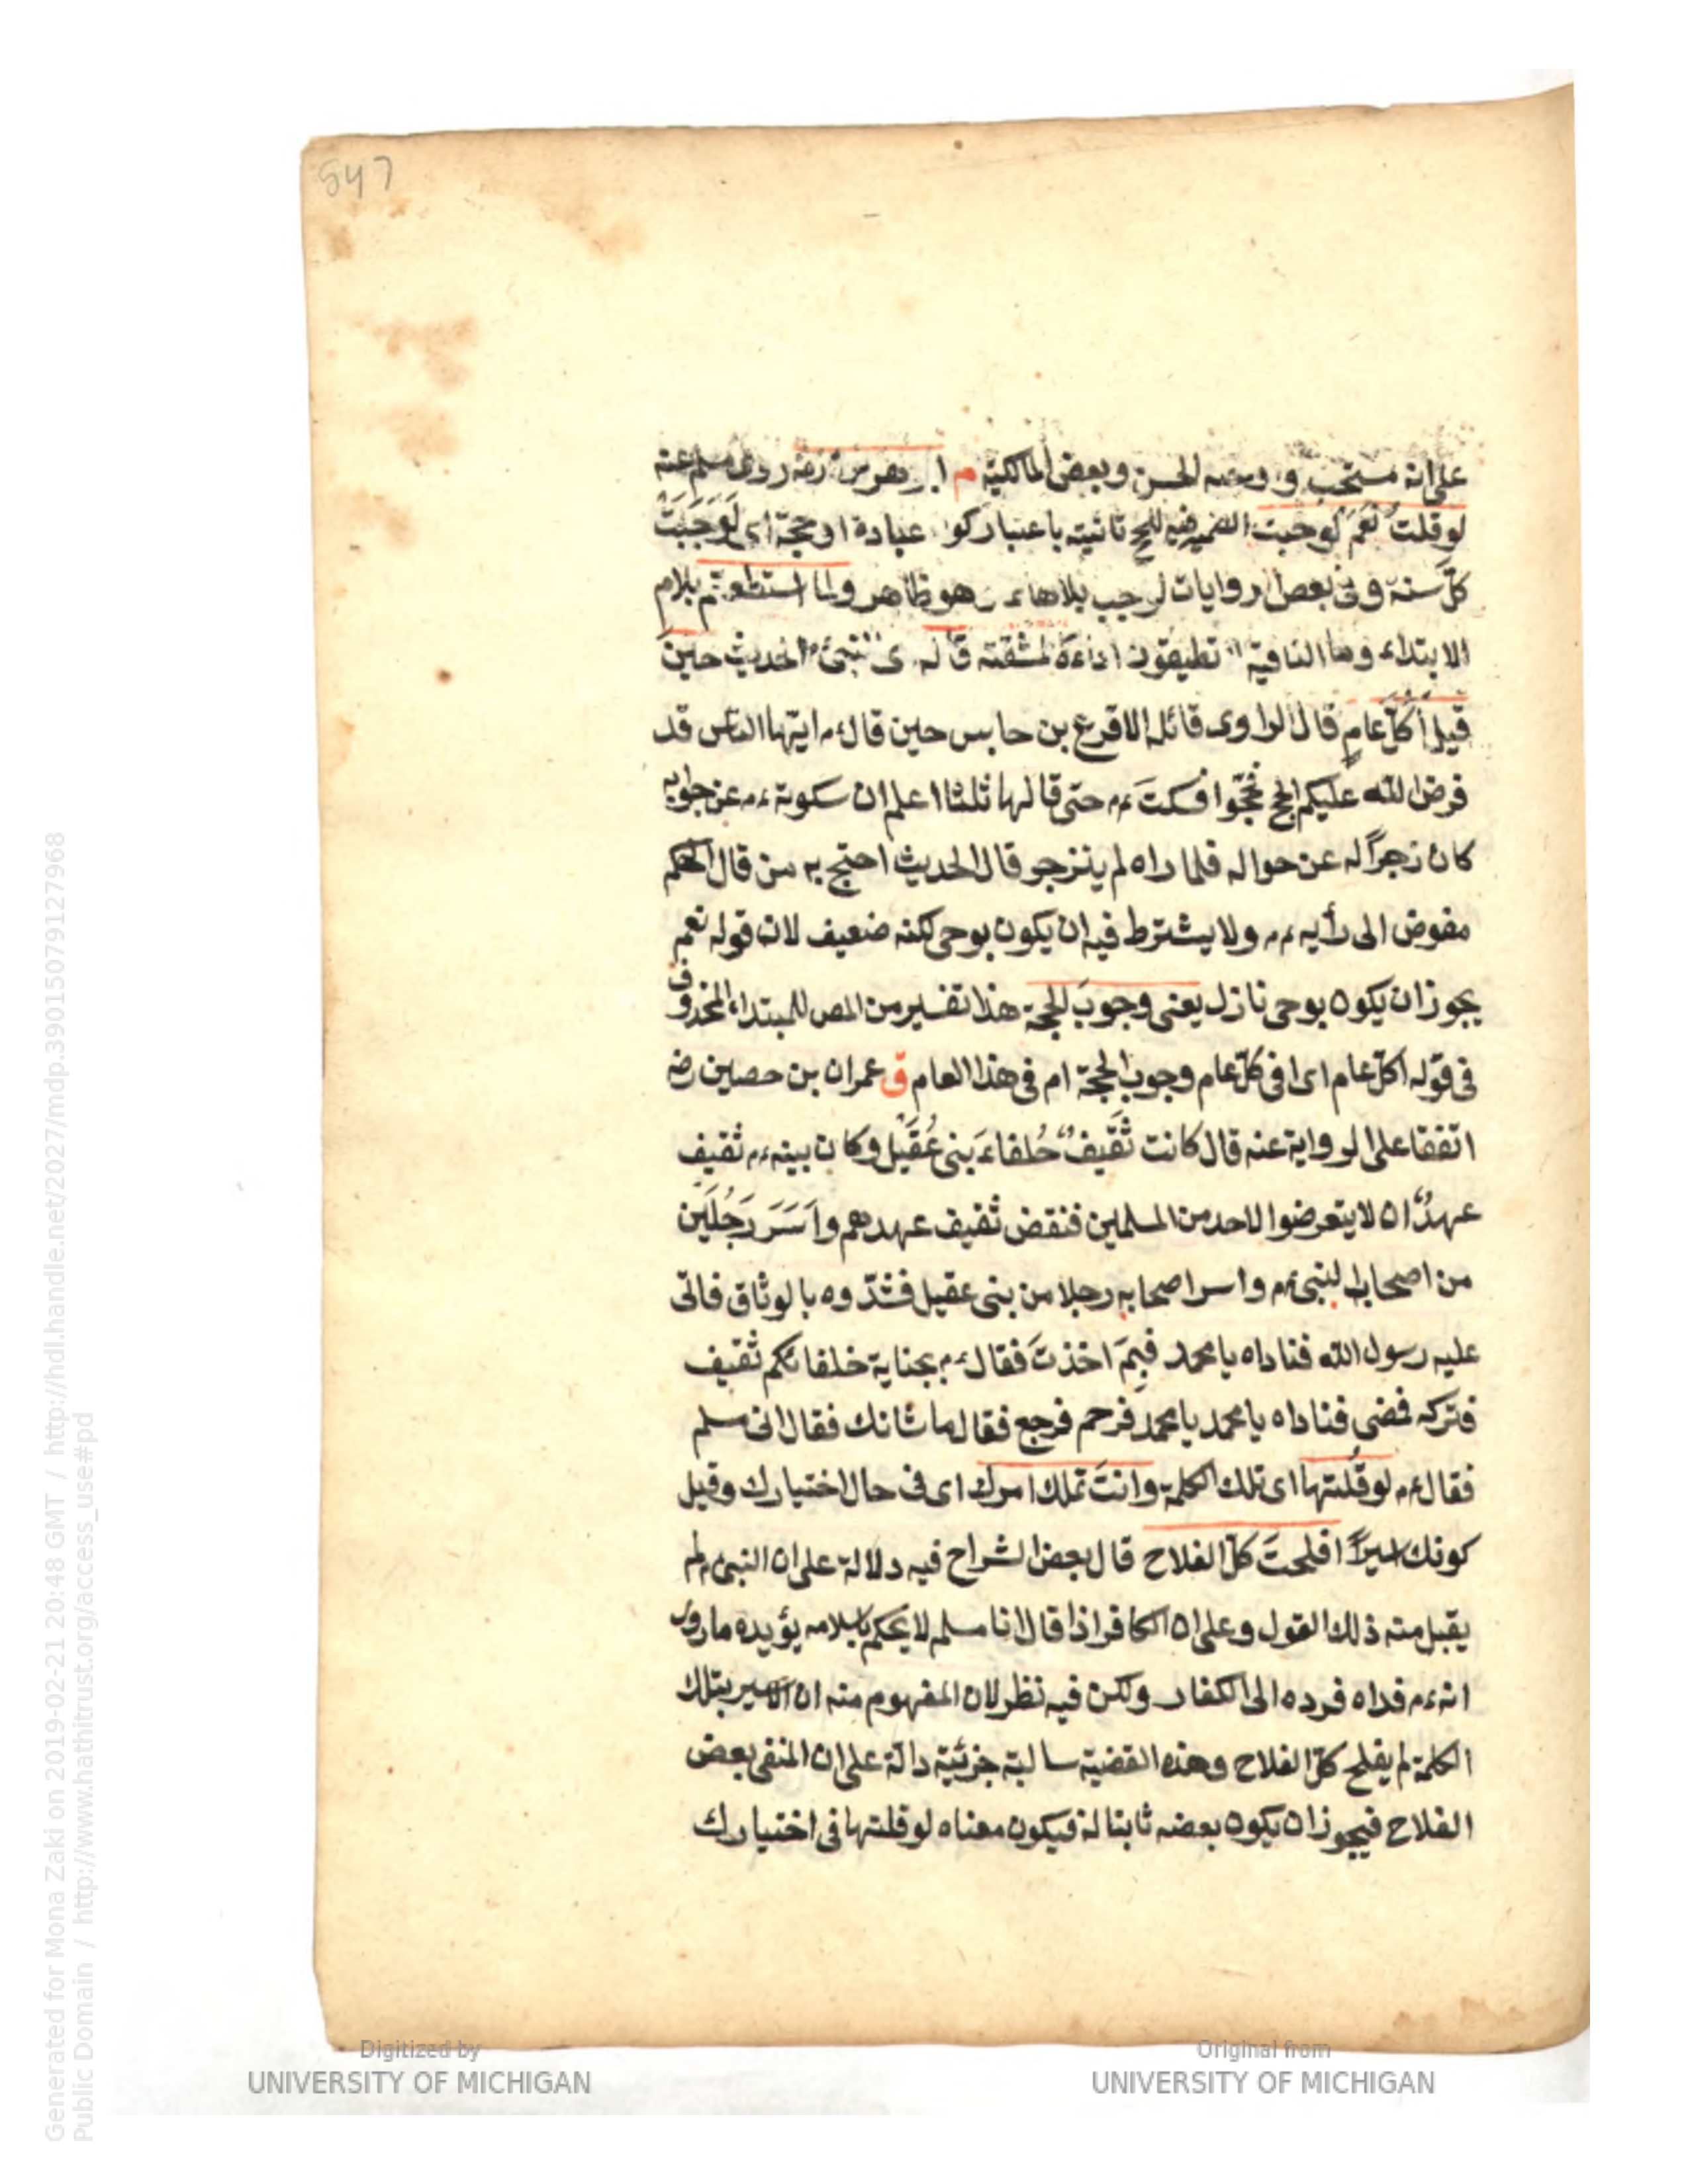 547
على انه مستحب و الحسن وبعض المالكية م ابو هريرة رضه روى مسلم عنه
لو قلت نعم لوجبت الضمير فيه للحج تانيثه باعتبار كو عبادة او حجة اى لوجبت
كل سنة وفى بعض الروايات لوجب بلا هاء وهو ظاهر ولما استطعتم بلام
الابتداء وما النافية تطيقون اداءه لمشقته قاله الحديث حين
قيل أكل عام قال الراوى قائله الاقرع بن حابس حين قال ءم ايها الناس قد
فرض الله عليكم الحج فحجوا فسكت ءم حتى قالها ثلثا اعلم ان سكوته ءم عن جوابه
كان زجرا له عن حواله فلما راه لم ينزجو قال الحديث احتج به من قال الحكم
مفوض الى رأيه ءم ولا يشترط فيه ان يكون بوحى لكنه ضعيف لان قوله نعم
يجوز ان يكون بوحى نازل يعنى وجوب الحجة هذا تفسير من المص للمبتداء المحذوف
فى قوله اكل عام اى افى كل عام وجوب الحجة ام فى هذا العام ق عمران بن حصين رضه
اتفقا على الرواية عنه قال كانت ثقيف حلفاء بنى عقيل وكان بينه ءم ثقيف
عهد ان لا يتعرضوا لاحد من المسلمين فنقض ثقيف عهدهم واسر رجلين
من اصحاب النبى ءم واسر اصحابه رجلا من بنى عقيل فشدوه بالوثاق فاتى
عليه رسول الله فناداه يا محمد فبم اخذت فقال ءم بجناية خلفائكم ثقيف
فتركه فمضى فناداه يا محمد يا محمد فرحم فرجع فقال ما شانك فقال انى مسلم
فقال ءم لو قلتها اى تلك الكلمة وانت تملك امرك اى فى حال اختيارك وقيل
كونك اسيرا افلحت كل الفلاح قال بعض الشراح فيه دلالة على ان النبى ءم لم
يقبل منه ذلك القول وعلى ان الكافر اذا قال انا مسلم لا يحكم باسلامه يؤيده ما روى
انه ءم فداه فرده الى الكفار ولكن فيه نظر لان المفهوم منه ان الاسير بتلك
الكلمة لم يفلح كل الفلاح وهذه القضية سالبة جزئية دالة على ان المنفى بعض
الفلاح فيجوز ان يكون بعضه ثابتا له فيكون معناه لو قلتها فى اختيارك
Digitized by
UNIVERSITY OF MICHIGAN
Original from
UNIVERSITY OF MICHIGAN
Generated for Mona Zaki on 2019-02-21 20:48 GMT / http://hdl.handle.net/2027/mdp.39015079127968
Public Domain / http://www.hathitrust.org/access_use#pd